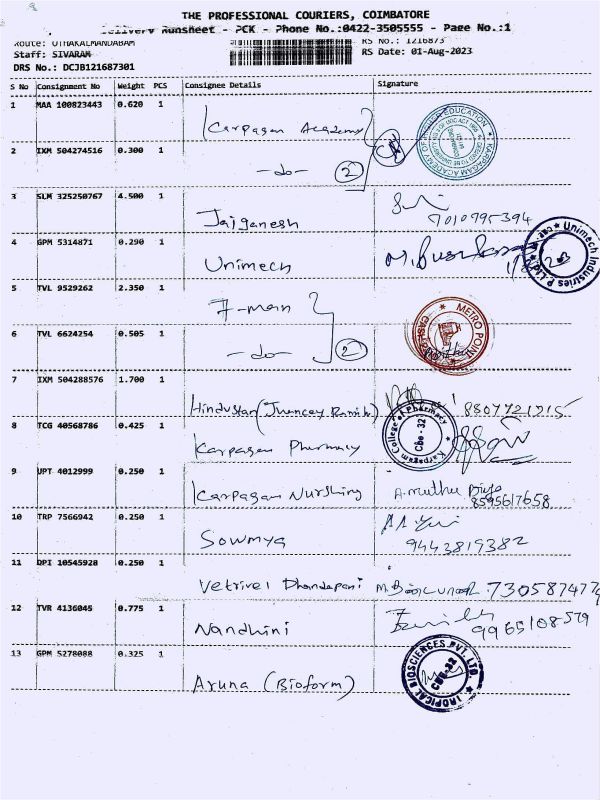 THE PROFESSIONAL COURIERS, COIMBATORE
Delivery Runsheet - PCK - Phone No.:0422-3505555 - Page No.:1
Route: OTHAKALMANDABAM
RS No.: 1216873
Staff: SIVARAM
RS Date: 01-Aug-2023
DRS No.: DCJB121687301
S No Consignment No Weight PCS Consignee Details Signature
1 MAA 100823443 0.620 1
Karpagam Academy
KARPAGAM ACADEMY OF HIGHER EDUCATION
2 IXM 504274516 0.300 1
-do- 2
3 SLM 325250767 4.500 1
Jaiganesh 7010795394
4 GPM 5314871 0.290 1
Unimech
Unimech Industries P.Ltd.
5 TVL 9529262 2.350 1
7-men
METRO POINT
6 TVL 6624254 0.505 1
-do- 2
7 IXM 504288576 1.700 1
Hindustan
8 TCG 40568786 0.425 1
Karpagam Pharmacy
Karpagam College of Pharmacy
CBE - 32
9 UPT 4012999 0.250 1
Karpagam Nurshing 8595617658
10 TRP 7566942 0.250 1
Sowmya 9443819382
11 DPI 10545928 0.250 1
Vetrivel Dhandapani
12 TVR 4136045 0.775 1
Nandhini 9965108579
13 GPM 5278088 0.325 1
Aruna (Bioform)
TROPICAL BIOSCIENCES PVT. LTD.
CBE-32